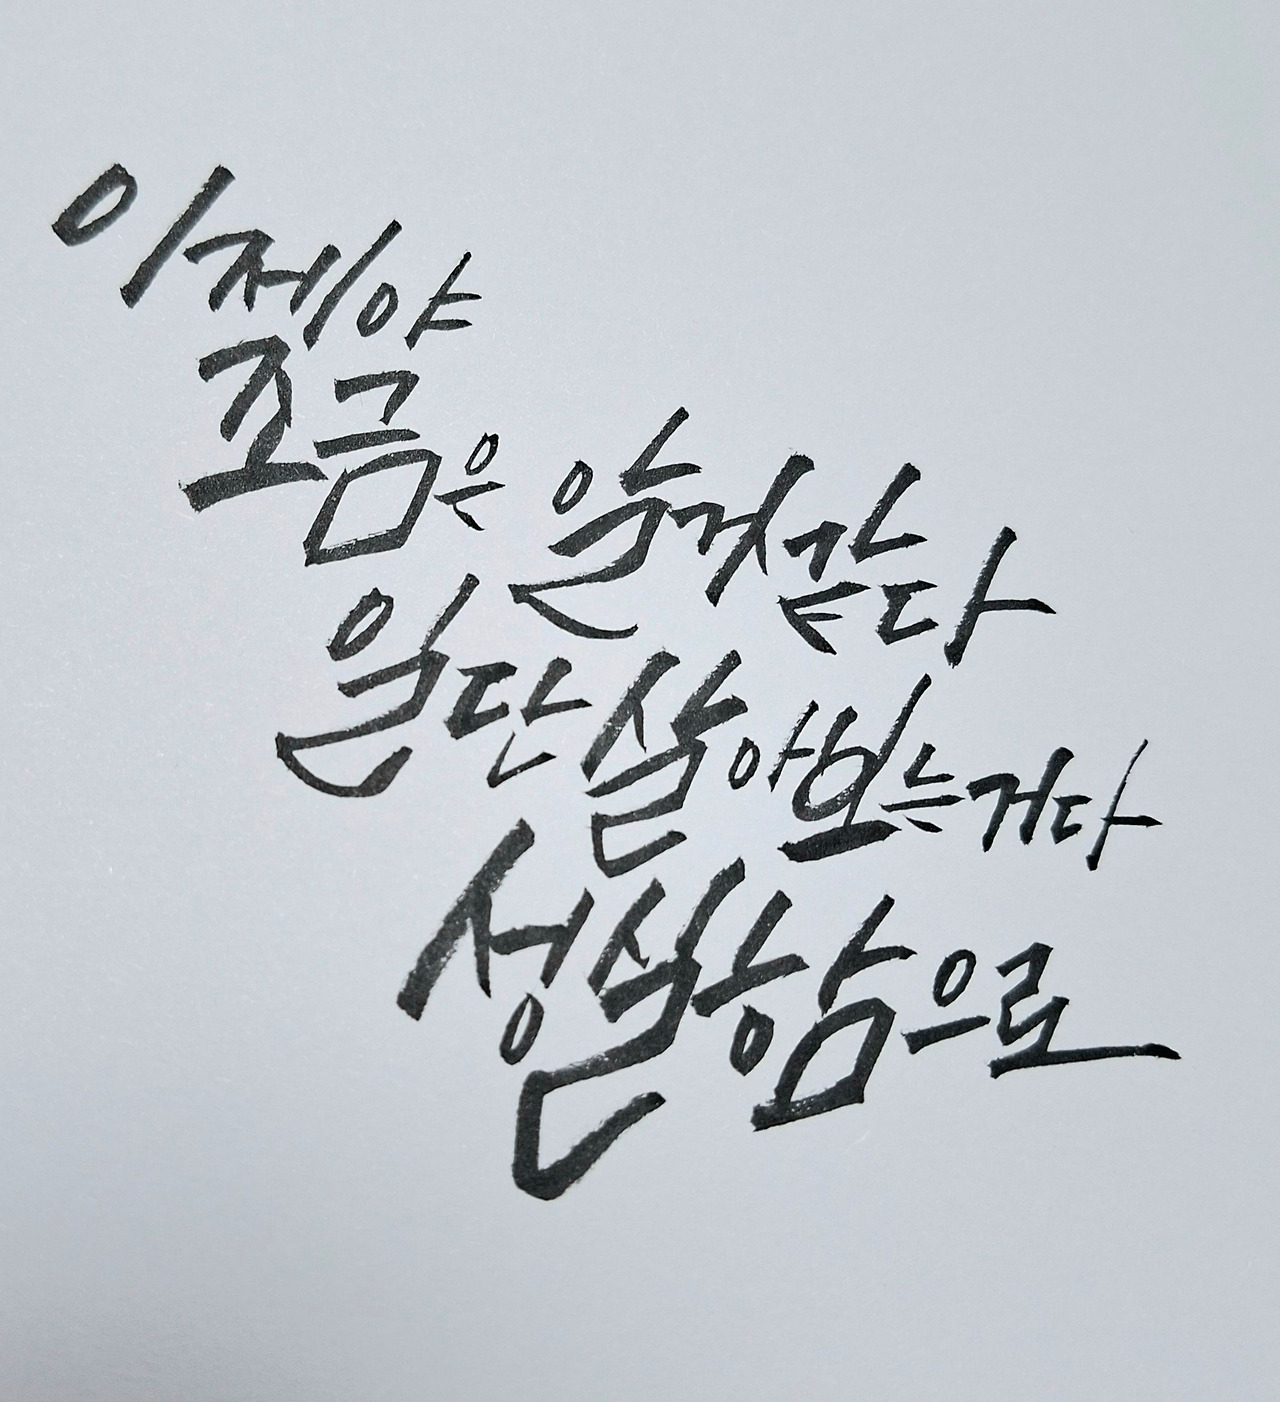 이제야
조금은 알거같다
일단 살아보는거다
성실함으로